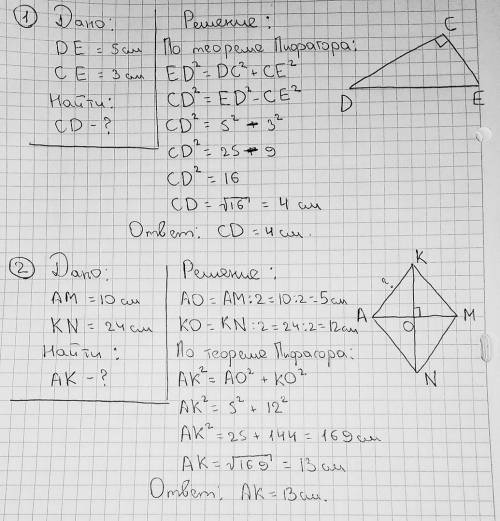 1 Дано:
DE = 5 см
CE = 3 см
Найти:
CD - ?
Решение:
По теореме Пифагора:
ED² = DC² + CE²
CD² = ED² - CE²
CD² = 5² - 3²
CD² = 25 - 9
CD² = 16
CD = √16 = 4 см
Ответ: CD = 4 см.
C
D
E
2 Дано:
AM = 10 см
KN = 24 см
Найти:
AK - ?
Решение:
AO = AM : 2 = 10 : 2 = 5 см
KO = KN : 2 = 24 : 2 = 12 см
По теореме Пифагора:
AK² = AO² + KO²
AK² = 5² + 12²
AK² = 25 + 144 = 169 см
AK = √169 = 13 см
Ответ: AK = 13 см.
K
?
A
O
M
N